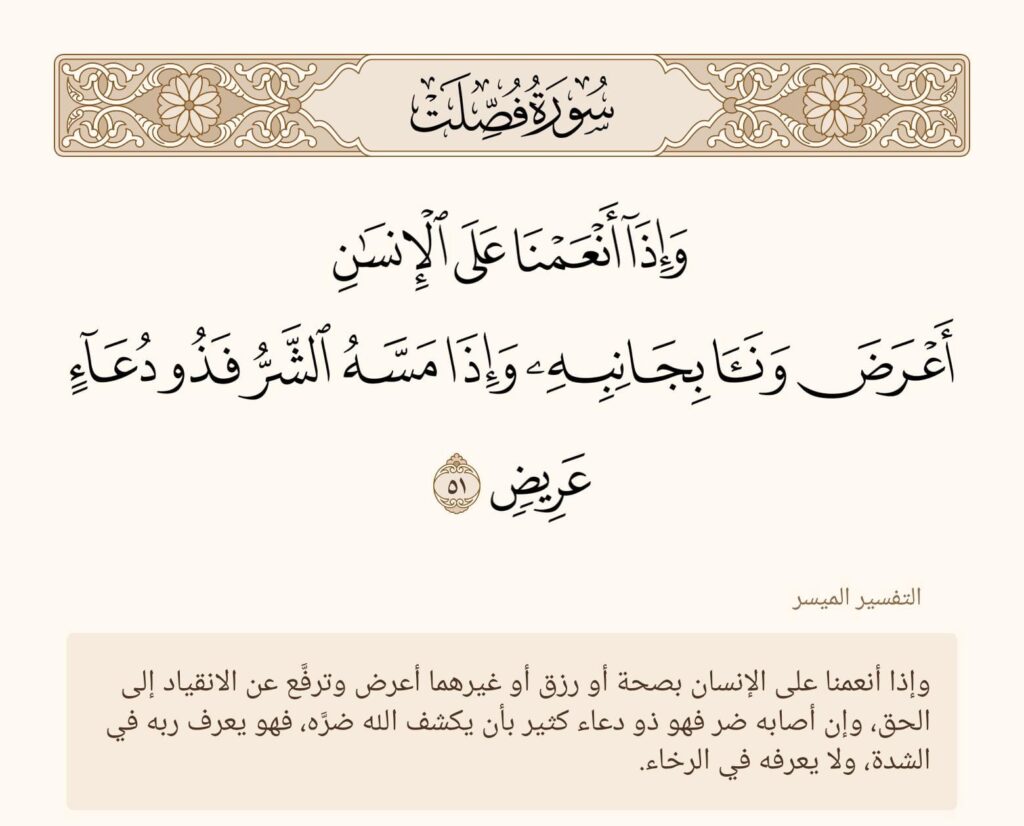 سُورَةُ فُصِّلَتْ
وَإِذَآ أَنْعَمْنَا عَلَى ٱلْإِنسَـٰنِ
أَعْرَضَ وَنَـَٔا بِجَانِبِهِۦ وَإِذَا مَسَّهُ ٱلشَّرُّ فَذُو دُعَآءٍ
عَرِيضٍ ٥١
التفسير الميسر
وإذا أنعمنا على الإنسان بصحة أو رزق أو غيرهما أعرض وترفَّع عن الانقياد إلى
الحق، وإن أصابه ضر فهو ذو دعاء كثير بأن يكشف الله ضرَّه، فهو يعرف ربه في
الشدة، ولا يعرفه في الرخاء.